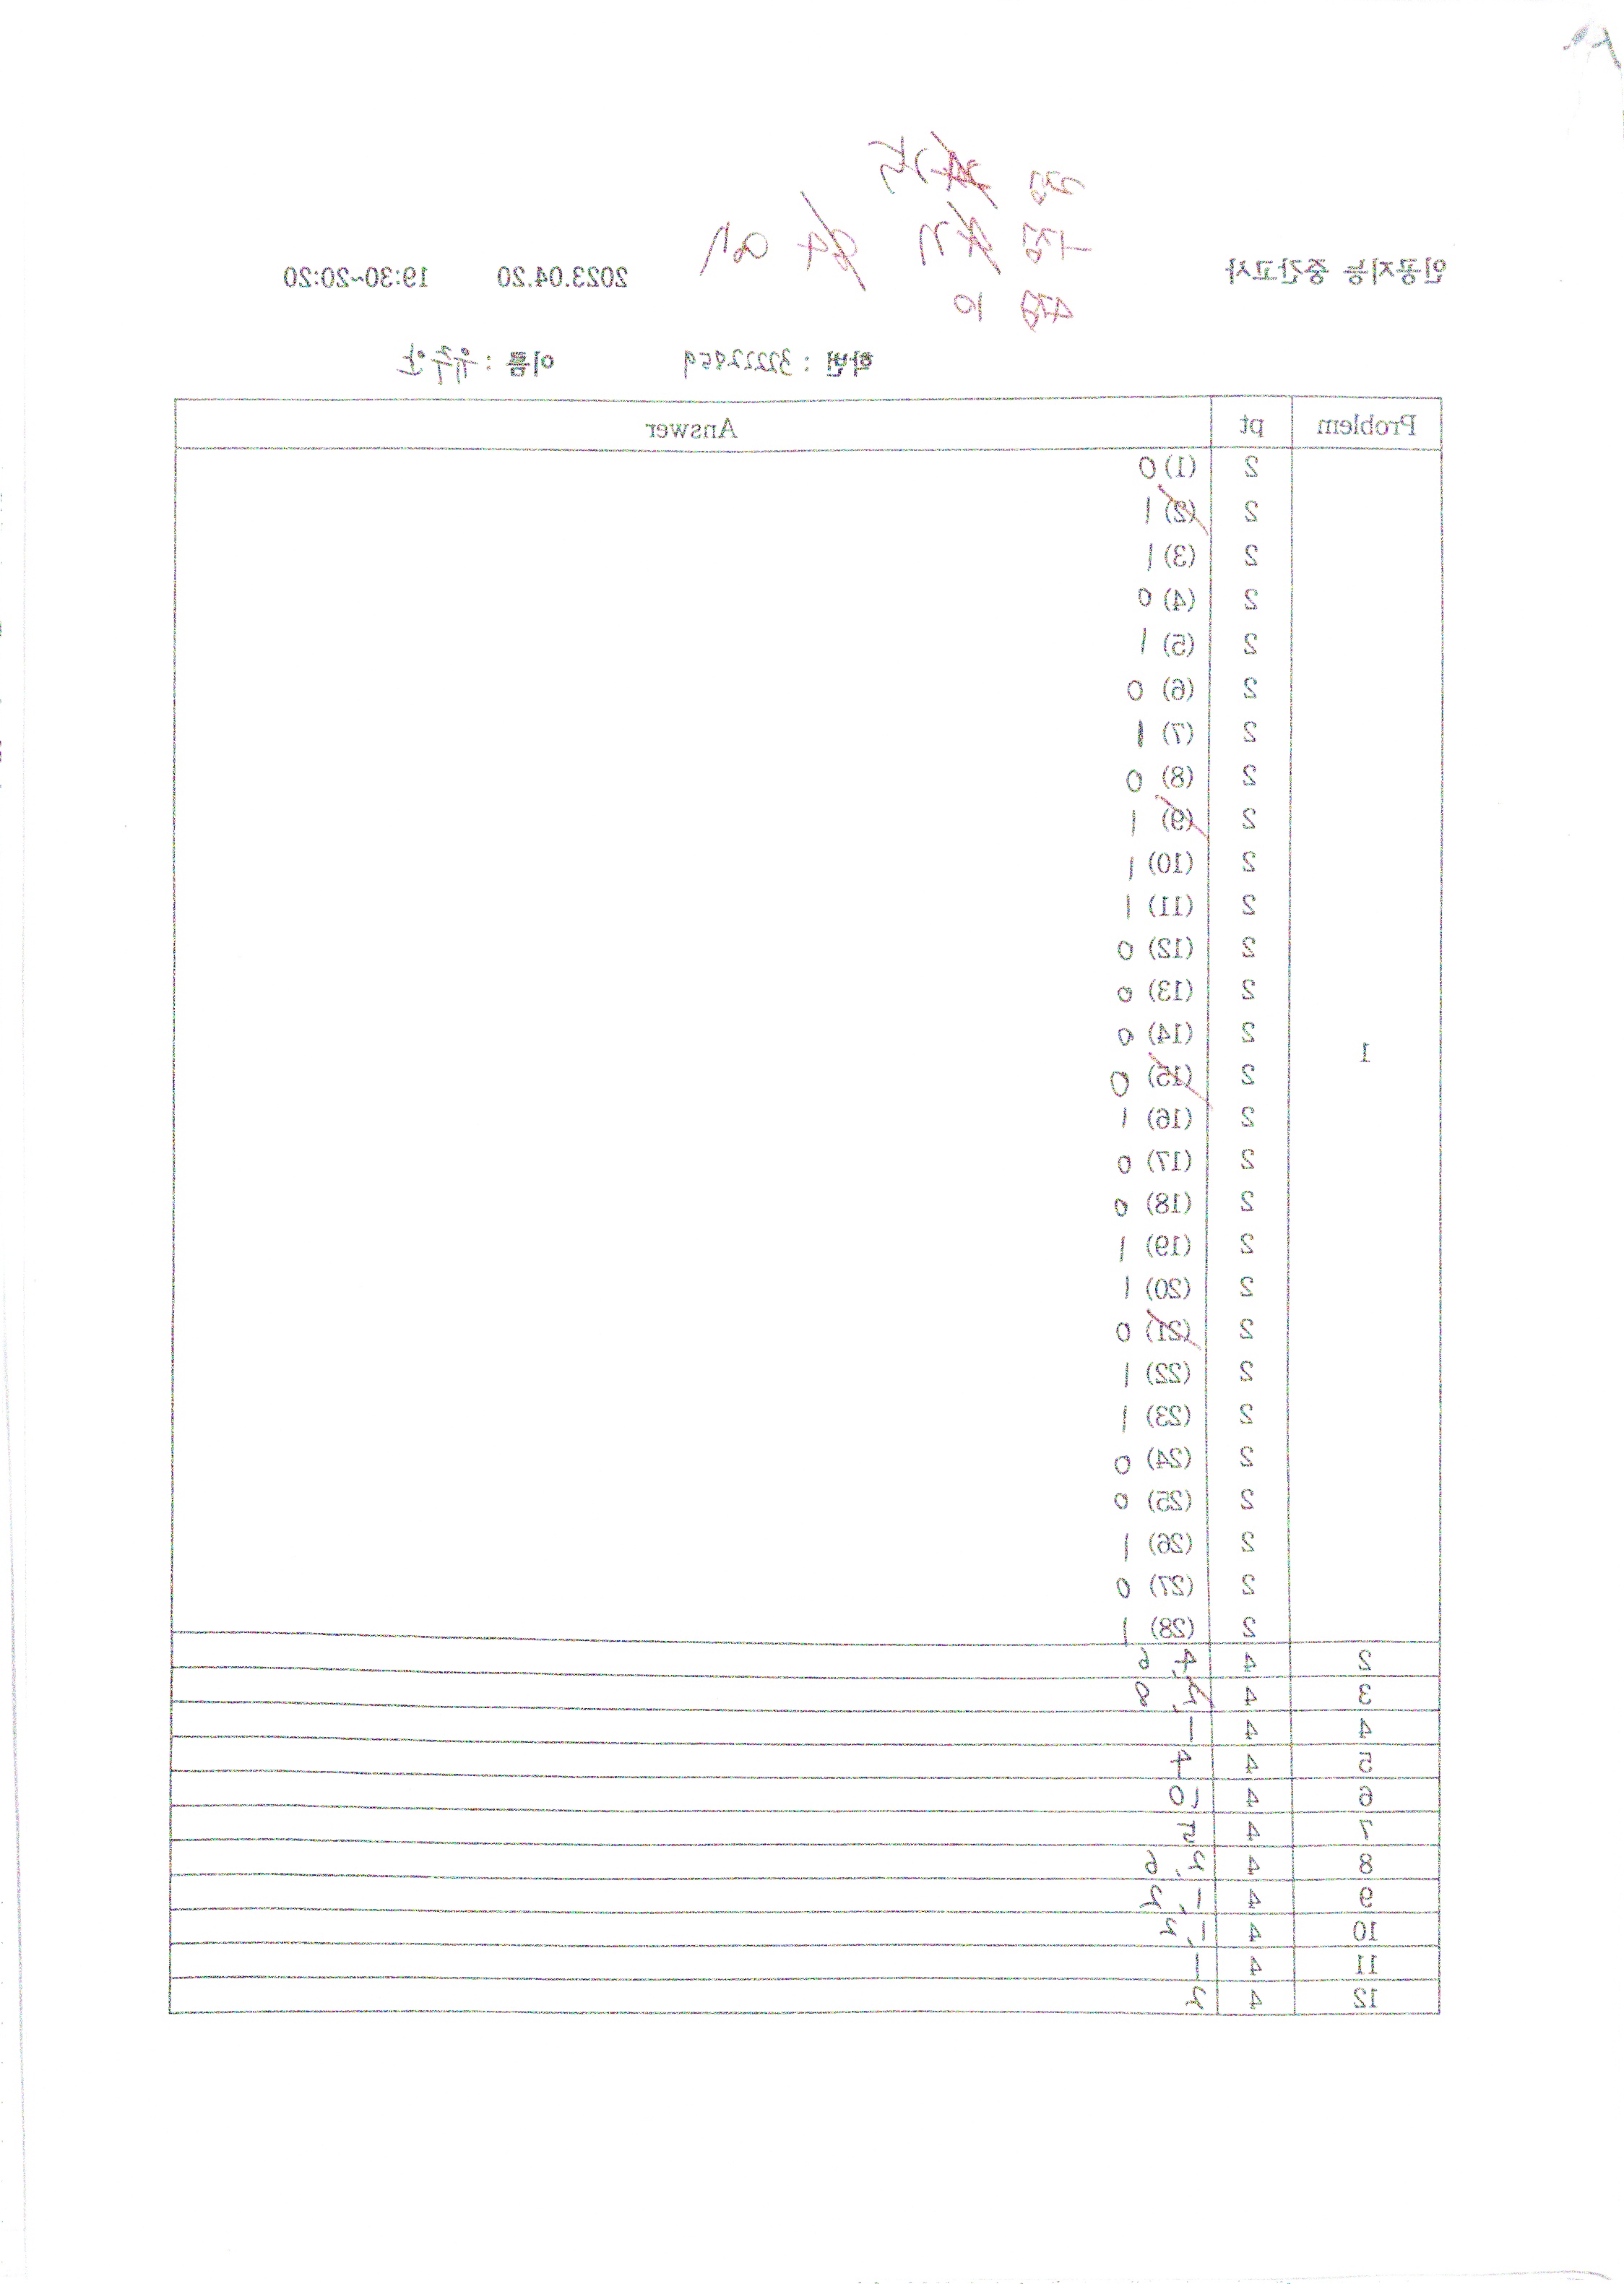 인공지능 중간고사 2023.04.20 19:30~20:20
학번 : 32222859 이름 : 유주안
Problem pt Answer
1
2 (1) 0
2 (2) 1
2 (3) 1
2 (4) 0
2 (5) 1
2 (6) 0
2 (7) 1
2 (8) 0
2 (9) 1
2 (10) 1
2 (11) 1
2 (12) 0
2 (13) 0
2 (14) 0
2 (15) 0
2 (16) 1
2 (17) 0
2 (18) 0
2 (19) 1
2 (20) 1
2 (21) 0
2 (22) 1
2 (23) 1
2 (24) 0
2 (25) 0
2 (26) 1
2 (27) 0
2 (28) 1
2 4 4, 6
3 4 2, 8
4 4 1
5 4 4
6 4 10
7 4 5
8 4 2, 6
9 4 1, 2
10 4 1, 2
11 4 1
12 4 2